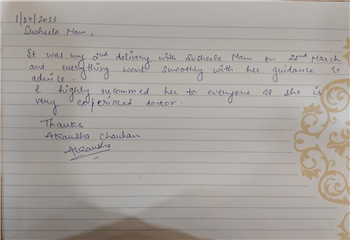 1/04/2025
Susheela Mam,
It was my 2nd delivery with Susheela Mam on 22nd March
and everything went smoothly with her guidance &
advice.
I highly recommed her to everyone as she is
very experinced doctor.
Thanks
Akansha Chauhan
Akansha